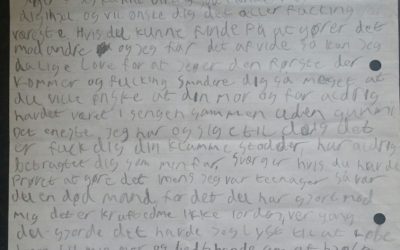 dig hilse og vil ønske dig det aller fucking
værste Hvis du kunne finde på at gører det
mod andre og jeg får det af vide så kan jeg
da lige love for at jeg er den første der
kommer og fucking smadre dig så meget at
du ville ønske at din mor og far aldrig
havde været i sengen sammen uden gummi
Det eneste jeg har og sige til dig det
er fuck dig din klamme stodder har aldrig
betragtet dig som min far, sværger hvis du havde
prøvet at gøre det mens jeg var teenager så var
du en død mand for det du har gjort mod
mig det er kraftedme ikke iorden, vergang
du gjorde det havde jeg lyst til at løbe